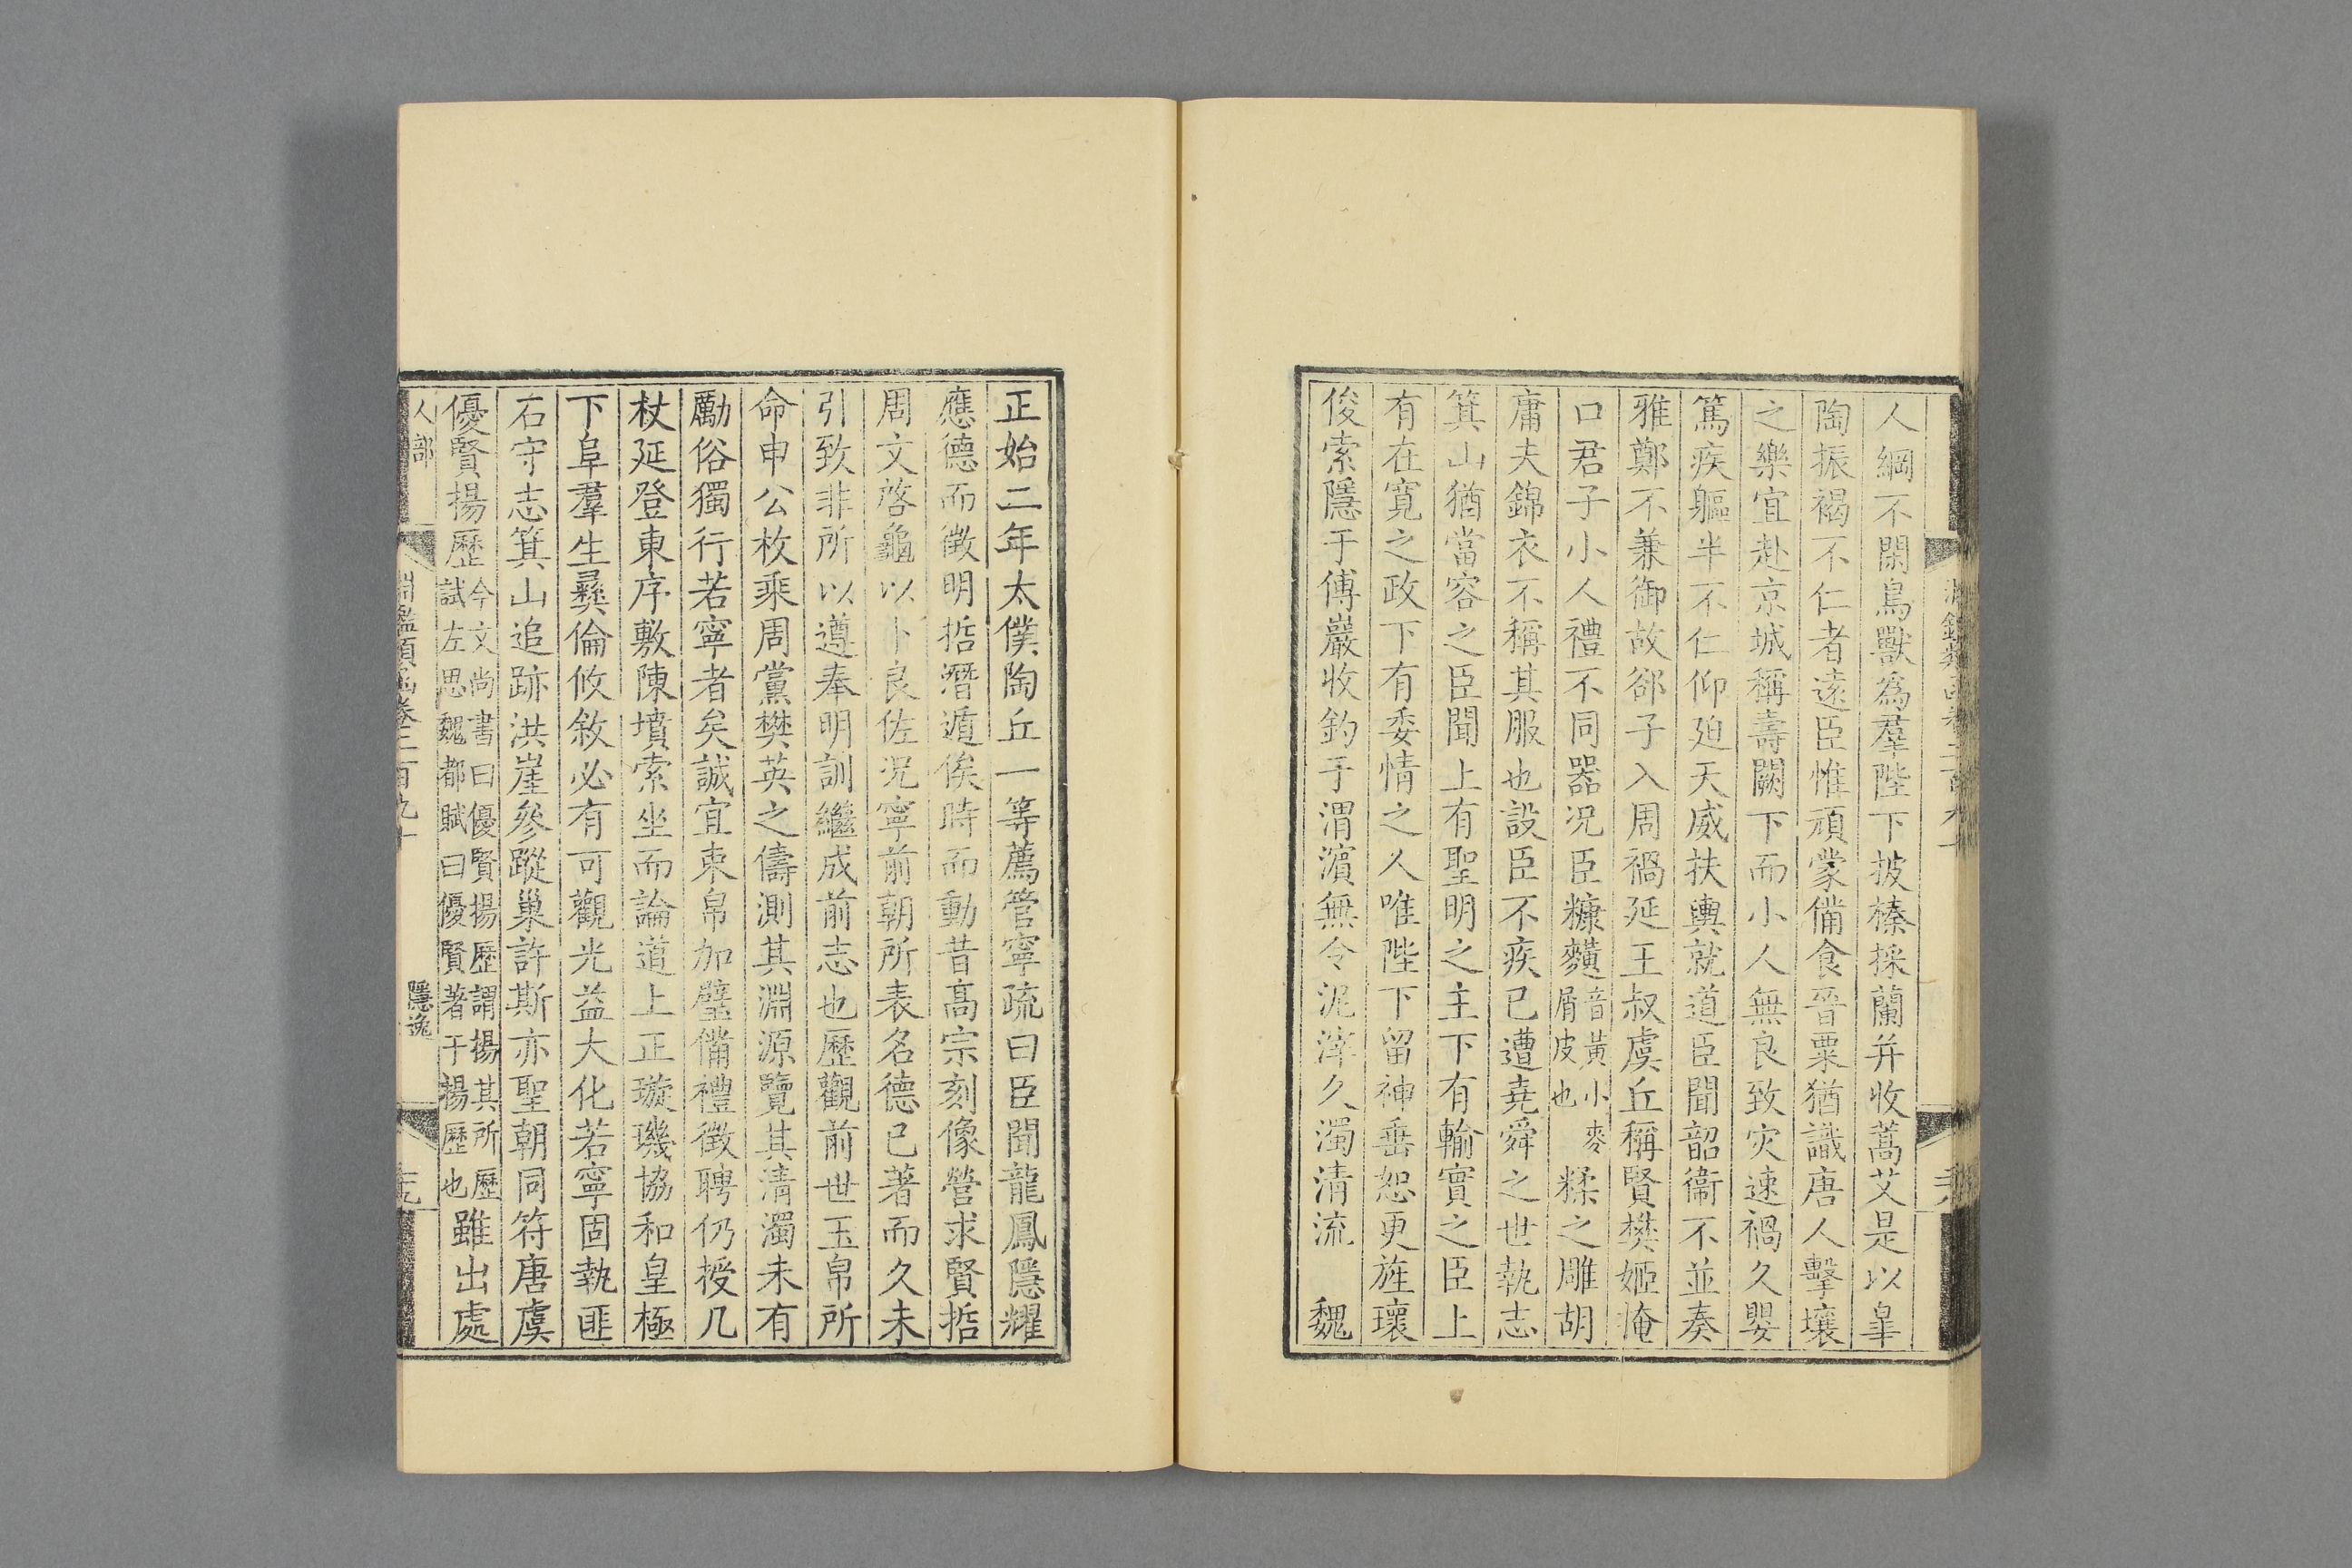 人綱不閑鳥獸為羣陛下披榛採蘭并收蒿艾是以臯
陶振褐不仁者遠臣惟頑蒙備食晉粟猶識唐人擊壤
之樂宜赴京城稱壽闕下而小人無良致灾速禍久嬰
篤疾軀半不仁仰廹天威扶輿就道臣聞韶衞不並奏
雅鄭不兼御故郤子入周禍延王叔虞丘稱賢樊姬掩
口君子小人禮不同器况臣糠䵃音黃小麥屑皮也糅之雕胡
庸夫錦衣不稱其服也設臣不疾已遭堯舜之世執志
箕山猶當容之臣聞上有聖明之主下有輸實之臣上
有在寬之政下有委情之人唯陛下留神垂恕更旌瓌
俊索隱于傅巖收釣于渭濵無令泥滓久濁清流　魏
正始二年太僕陶丘一等薦管寧疏曰臣聞龍鳳隱耀
應德而徵明哲潛遁俟時而動昔高宗刻像營求賢哲
周文啓龜以卜良佐况寧前朝所表名德已著而久未
引致非所以遵奉明訓繼成前志也歷觀前世玉帛所
命申公枚乘周黨樊英之儔測其淵源覽其清濁未有
勵俗獨行若寧者矣誠宜束帛加璧備禮徵聘仍授几
杖延登東序敷陳墳索坐而論道上正璇璣協和皇極
下阜羣生彝倫攸敘必有可觀光益大化若寧固執匪
石守志箕山追跡洪崖參蹤巢許斯亦聖朝同符唐虞
優賢揚歷今文尚書曰優賢揚歷謂揚其所歷試左思魏都賦曰優賢著于揚歷也雖出處
人部
淵鑑類函卷二百九十
隱逸